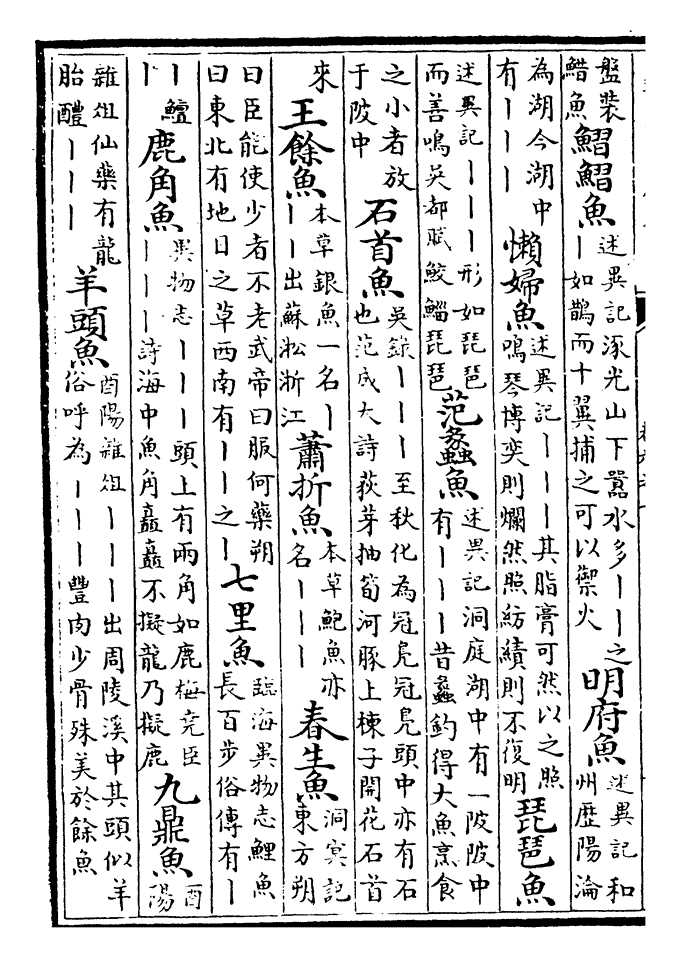 盤裝
鰭魚
鰼鰼魚
述異記涿光山下囂水多丨丨之
丨如鵲而十翼捕之可以禦火
明府魚
述異記和
州歷陽淪
為湖今湖中
有丨丨丨
懶婦魚
述異記丨丨丨其脂膏可然以之照
鳴琴博奕則爛然照紡績則不復明
琵琶魚
述異記丨丨丨形如琵琶
而善鳴吳都賦鮫鯔琵琶
范蠡魚
述異記洞庭湖中有一陂陂中
有丨丨丨昔蠡釣得大魚烹食
之小者放
于陂中
石首魚
吳錄丨丨丨至秋化為冠鳧冠鳧頭中亦有石
也范成大詩荻芽抽筍河豚上楝子開花石首
來
王餘魚
本草銀魚一名丨
丨丨出蘇淞浙江
蕭折魚
本草鮑魚亦
名丨丨丨
春生魚
洞冥記
東方朔
曰臣能使少者不老武帝曰服何藥朔
曰東北有地日之草西南有丨丨之丨
七里魚
臨海異物志鯉魚
長百步俗傳有丨
丨鱣
丨
鹿角魚
異物志丨丨丨頭上有兩角如鹿梅堯臣
丨丨丨詩海中魚角矗矗不擬龍乃擬鹿
九鼎魚
酉
陽
雜俎仙藥有龍
胎醴丨丨丨
羊頭魚
酉陽雜俎丨丨丨出周陵溪中其頭似羊
俗呼為丨丨丨豐肉少骨殊美於餘魚